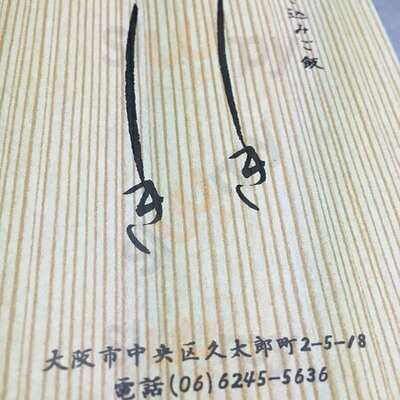 込みご飯
き
き
大阪市中央区久太郎町2-5-18
電話(06)6245-5636